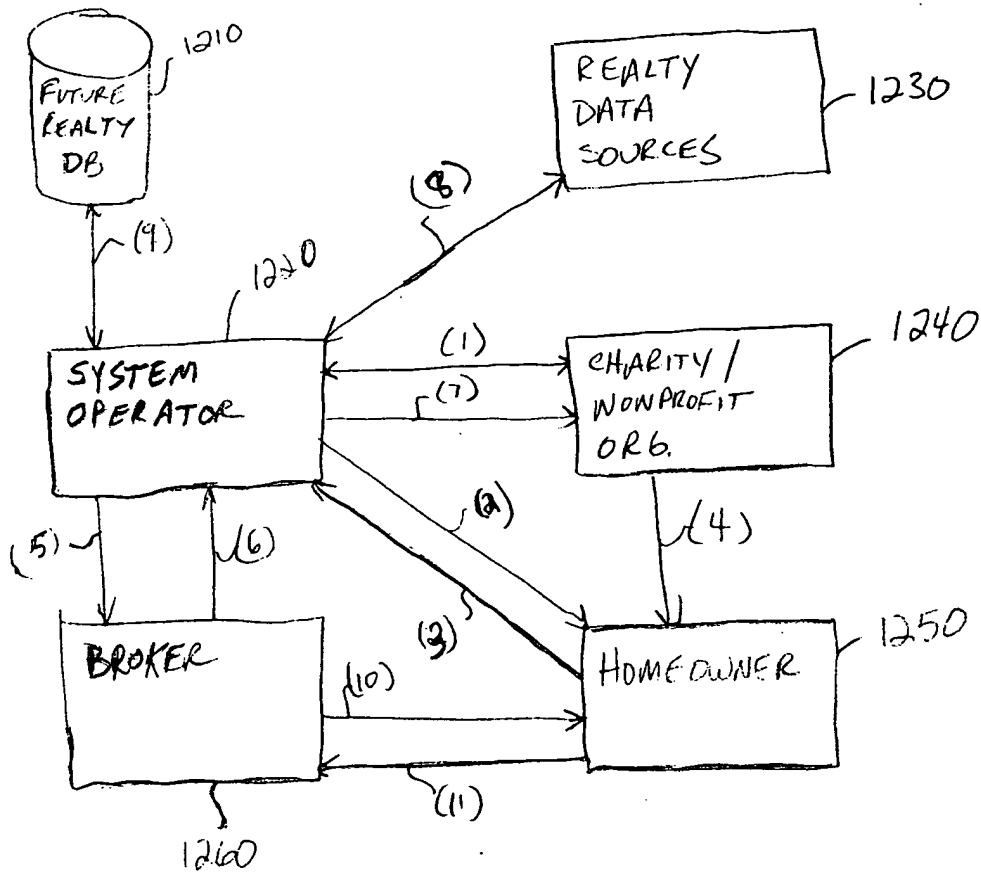 1210
FUTURE
REALTY
DB
REALTY
DATA
SOURCES
1230
(8)
(9)
1220
SYSTEM
OPERATOR
(1)
(7)
CHARITY/
NONPROFIT
ORG.
1240
(2)
(3)
(4)
(5)
(6)
BROKER
(10)
(11)
HOMEOWNER
1250
1260